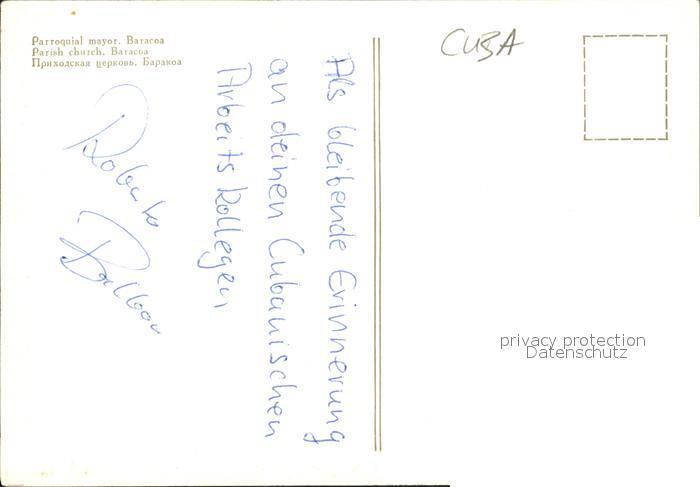 Parroquial mayor. Baracoa
Parish church. Baracoa
Приходская церковь. Баракоа
CUBA
Als bleibende Erinnerung
an deinen Cubanischen
Arbeitskollegen
Roberto
privacy protection
Datenschutz